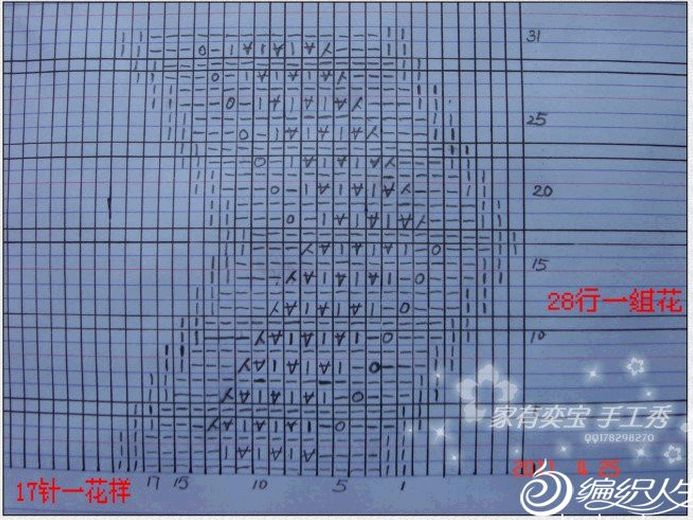 31
25
20
15
28行一组花
10
家有奕宝 手工秀
QQ178298270
17 15 10 5 1
17针一花样
编织人生